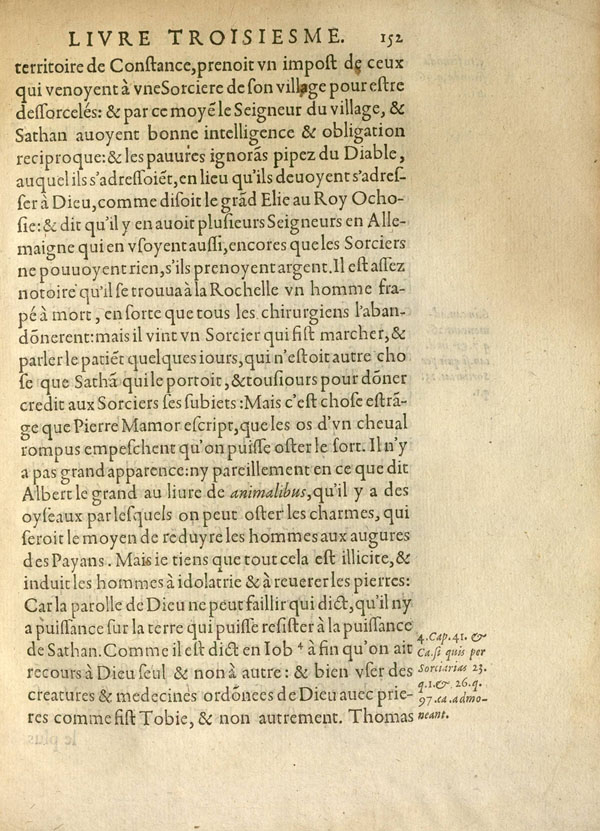 LIVRE TROISIESME. 152
territoire de Constance, prenoit vn impost de ceux
qui venoyent à vne Sorciere de son village pour estre
dessorcelés: & par ce moyẽ le Seigneur du village, &
Sathan auoyent bonne intelligence & obligation
reciproque: & les pauures ignorãs pipez du Diable,
auquel ils s'adressoiẽt, en lieu qu'ils deuoyent s'adres-
ser à Dieu, comme disoit le grãd Elie au Roy Ocho-
sie: & dit qu'il y en auoit plusieurs Seigneurs en Alle-
maigne qui en vsoyent aussi, encores que les Sorciers
ne pouuoyent rien, s'ils prenoyent argent. Il est assez
notoire qu'il se trouua à la Rochelle vn homme fra-
pé à mort, en sorte que tous les chirurgiens l'aban-
dõnerent: mais il vint vn Sorcier qui fist marcher, &
parler le patiẽt quelques iours, qui n'estoit autre cho
se que Sathã qui le portoit, & tousiours pour dõner
credit aux Sorciers ses subiets: Mais c'est chose estrã-
ge que Pierre Mamor escript, que les os d'vn cheual
rompus empeschent qu'on puisse oster le sort. Il n'y
a pas grand apparence: ny pareillement en ce que dit
Albert le grand au liure de animalibus, qu'il y a des
oyseaux par lesquels on peut oster les charmes, qui
seroit le moyen de reduyre les hommes aux augures
des Payans. Mais ie tiens que tout cela est illicite, &
induit les hommes à idolatrie & à reuerer les pierres:
Car la parolle de Dieu ne peut faillir qui dict, qu'il ny
a puissance sur la terre qui puisse resister à la puissance
de Sathan. Comme il est dict en Iob 4 à fin qu'on ait
recours à Dieu seul & non à autre: & bien vser des
creatures & medecines ordõnees de Dieu auec prie-
res comme fist Tobie, & non autrement. Thomas
4. Cap. 41. &
Ca. si quis per
Sorciarias 23.
q. 1. &. 26. q.
97. ca. admo-
neant.